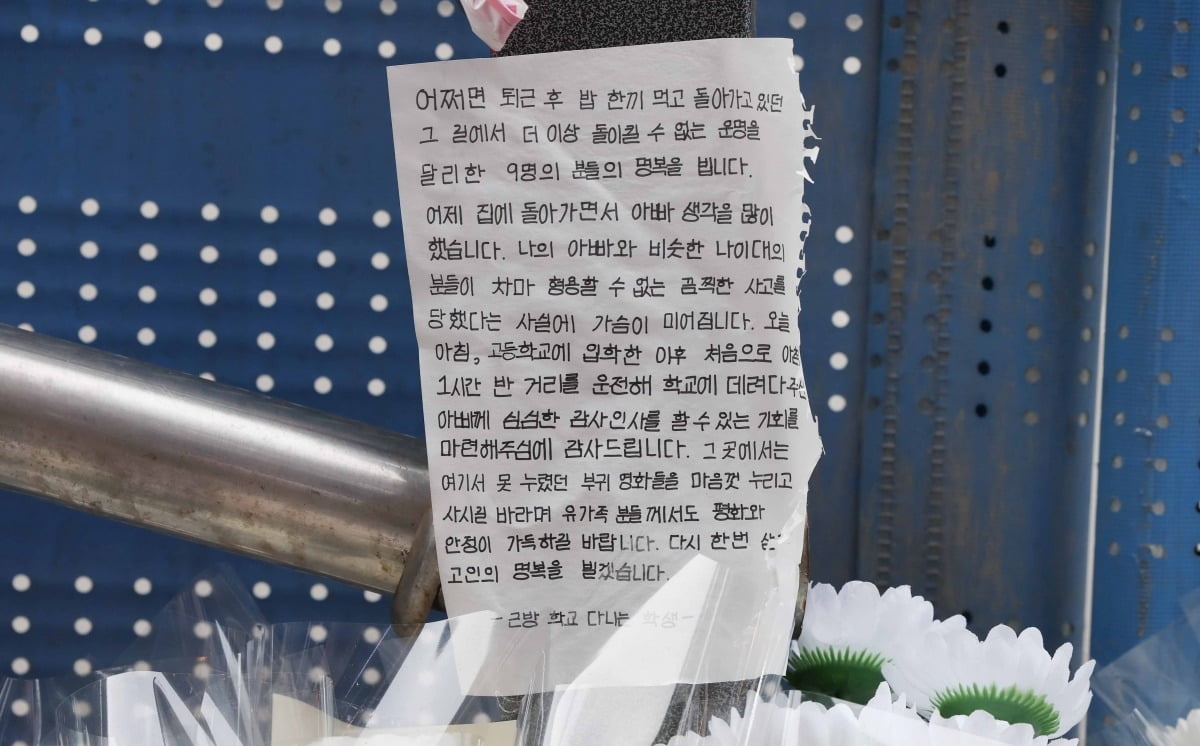 어쩌면 퇴근 후 밥 한끼 먹고 돌아가고 있던
그 길에서 더 이상 돌이킬 수 없는 운명을
달리한 9명의 분들의 명복을 빕니다.
어제 집에 돌아가면서 아빠 생각을 많이
했습니다. 나의 아빠와 비슷한 나이대의
분들이 차마 형용할 수 없는 끔찍한 사고를
당했다는 사실에 가슴이 미어집니다. 오늘
아침, 고등학교에 입학한 이후 처음으로
1시간 반 거리를 운전해 학교에 데려다주신
아빠께 심심한 감사인사를 할 수 있는 기회를
마련해주심에 감사드립니다. 그 곳에서는
여기서 못 누렸던 부귀 영화들을 마음껏 누리고
사시길 바라며 유가족 분들께서도 평화와
안정이 가득하길 바랍니다. 다시 한번
고인의 명복을 빌겠습니다.
- 근방 학교 다니는 학생 -